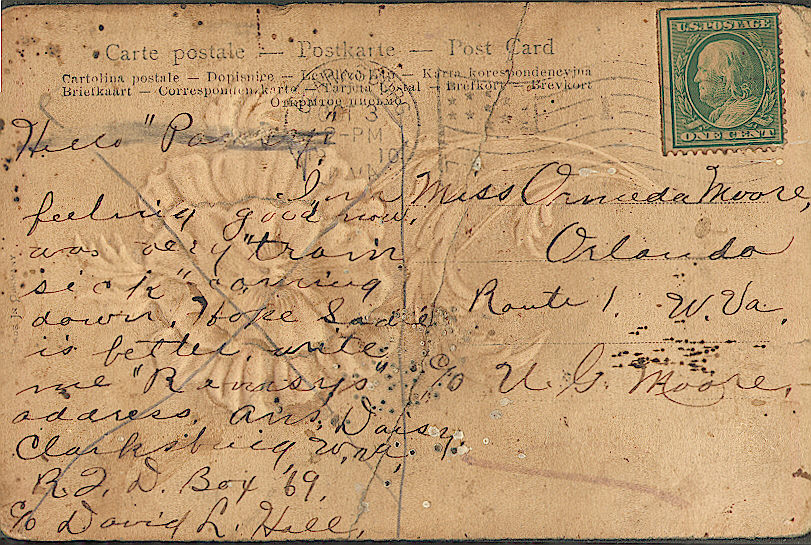 Carte postale — Postkarte — Post Card
Cartolina postale — Dopisnice — Levelező-Lap — Karta korespondencyjna
Briefkaart — Correspondenzkarte — Tarjeta Postal — Brefkort — Brevkort
Открытое письмо
U.S. POSTAGE
ONE CENT
3
-PM
10
Hello "Pansy"
I'm
feeling good now,
was very "train
sick" coming
down, Hope Sadie
is better, write
me "Ramsys"
address, Ans, Daisy,
Clarksburg, W,Va,
R.F.D. Box 69,
c/o David L. Hall,
Miss Ormeda Moore,
Orlando
Route 1. W. Va,
c/o U. G. Moore,